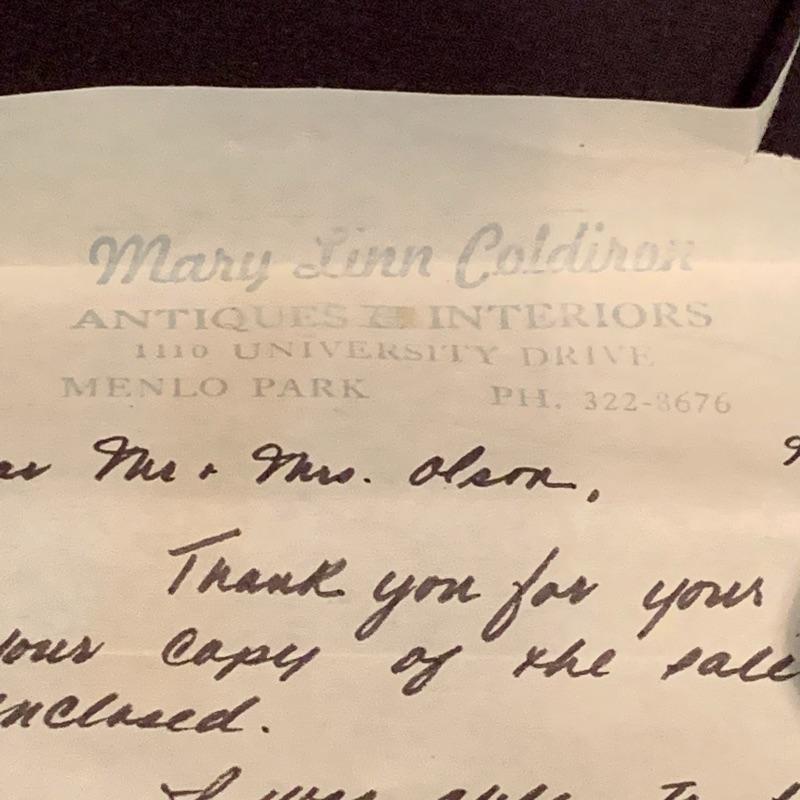 Mary Linn Coldiron
ANTIQUES & INTERIORS
1110 UNIVERSITY DRIVE
MENLO PARK PH. 322-8676
Mr + Mrs. Olson,
Thank you for your
your copy of the sale
enclosed.
I was